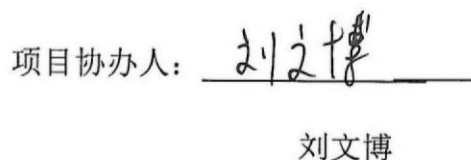 项目协办人：刘文博
刘文博